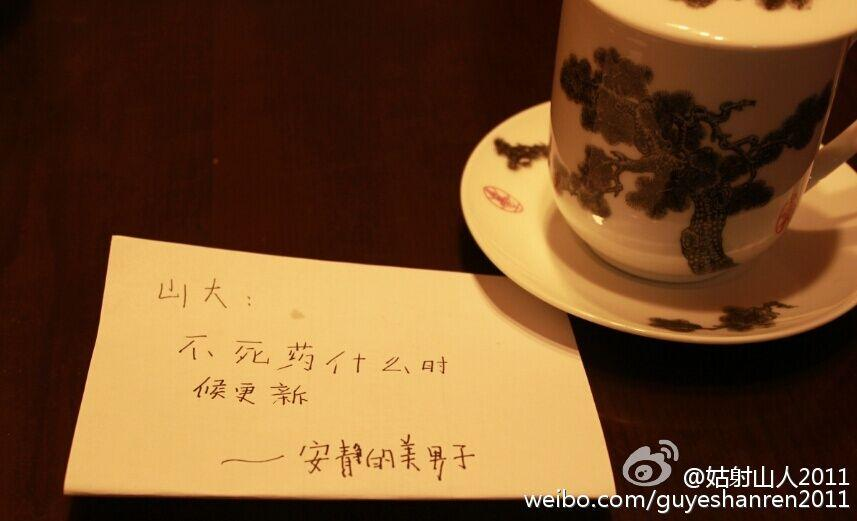 山大：
不死药什么时
候更新
——安静的美男子
@姑射山人2011
weibo.com/guyeshanren2011